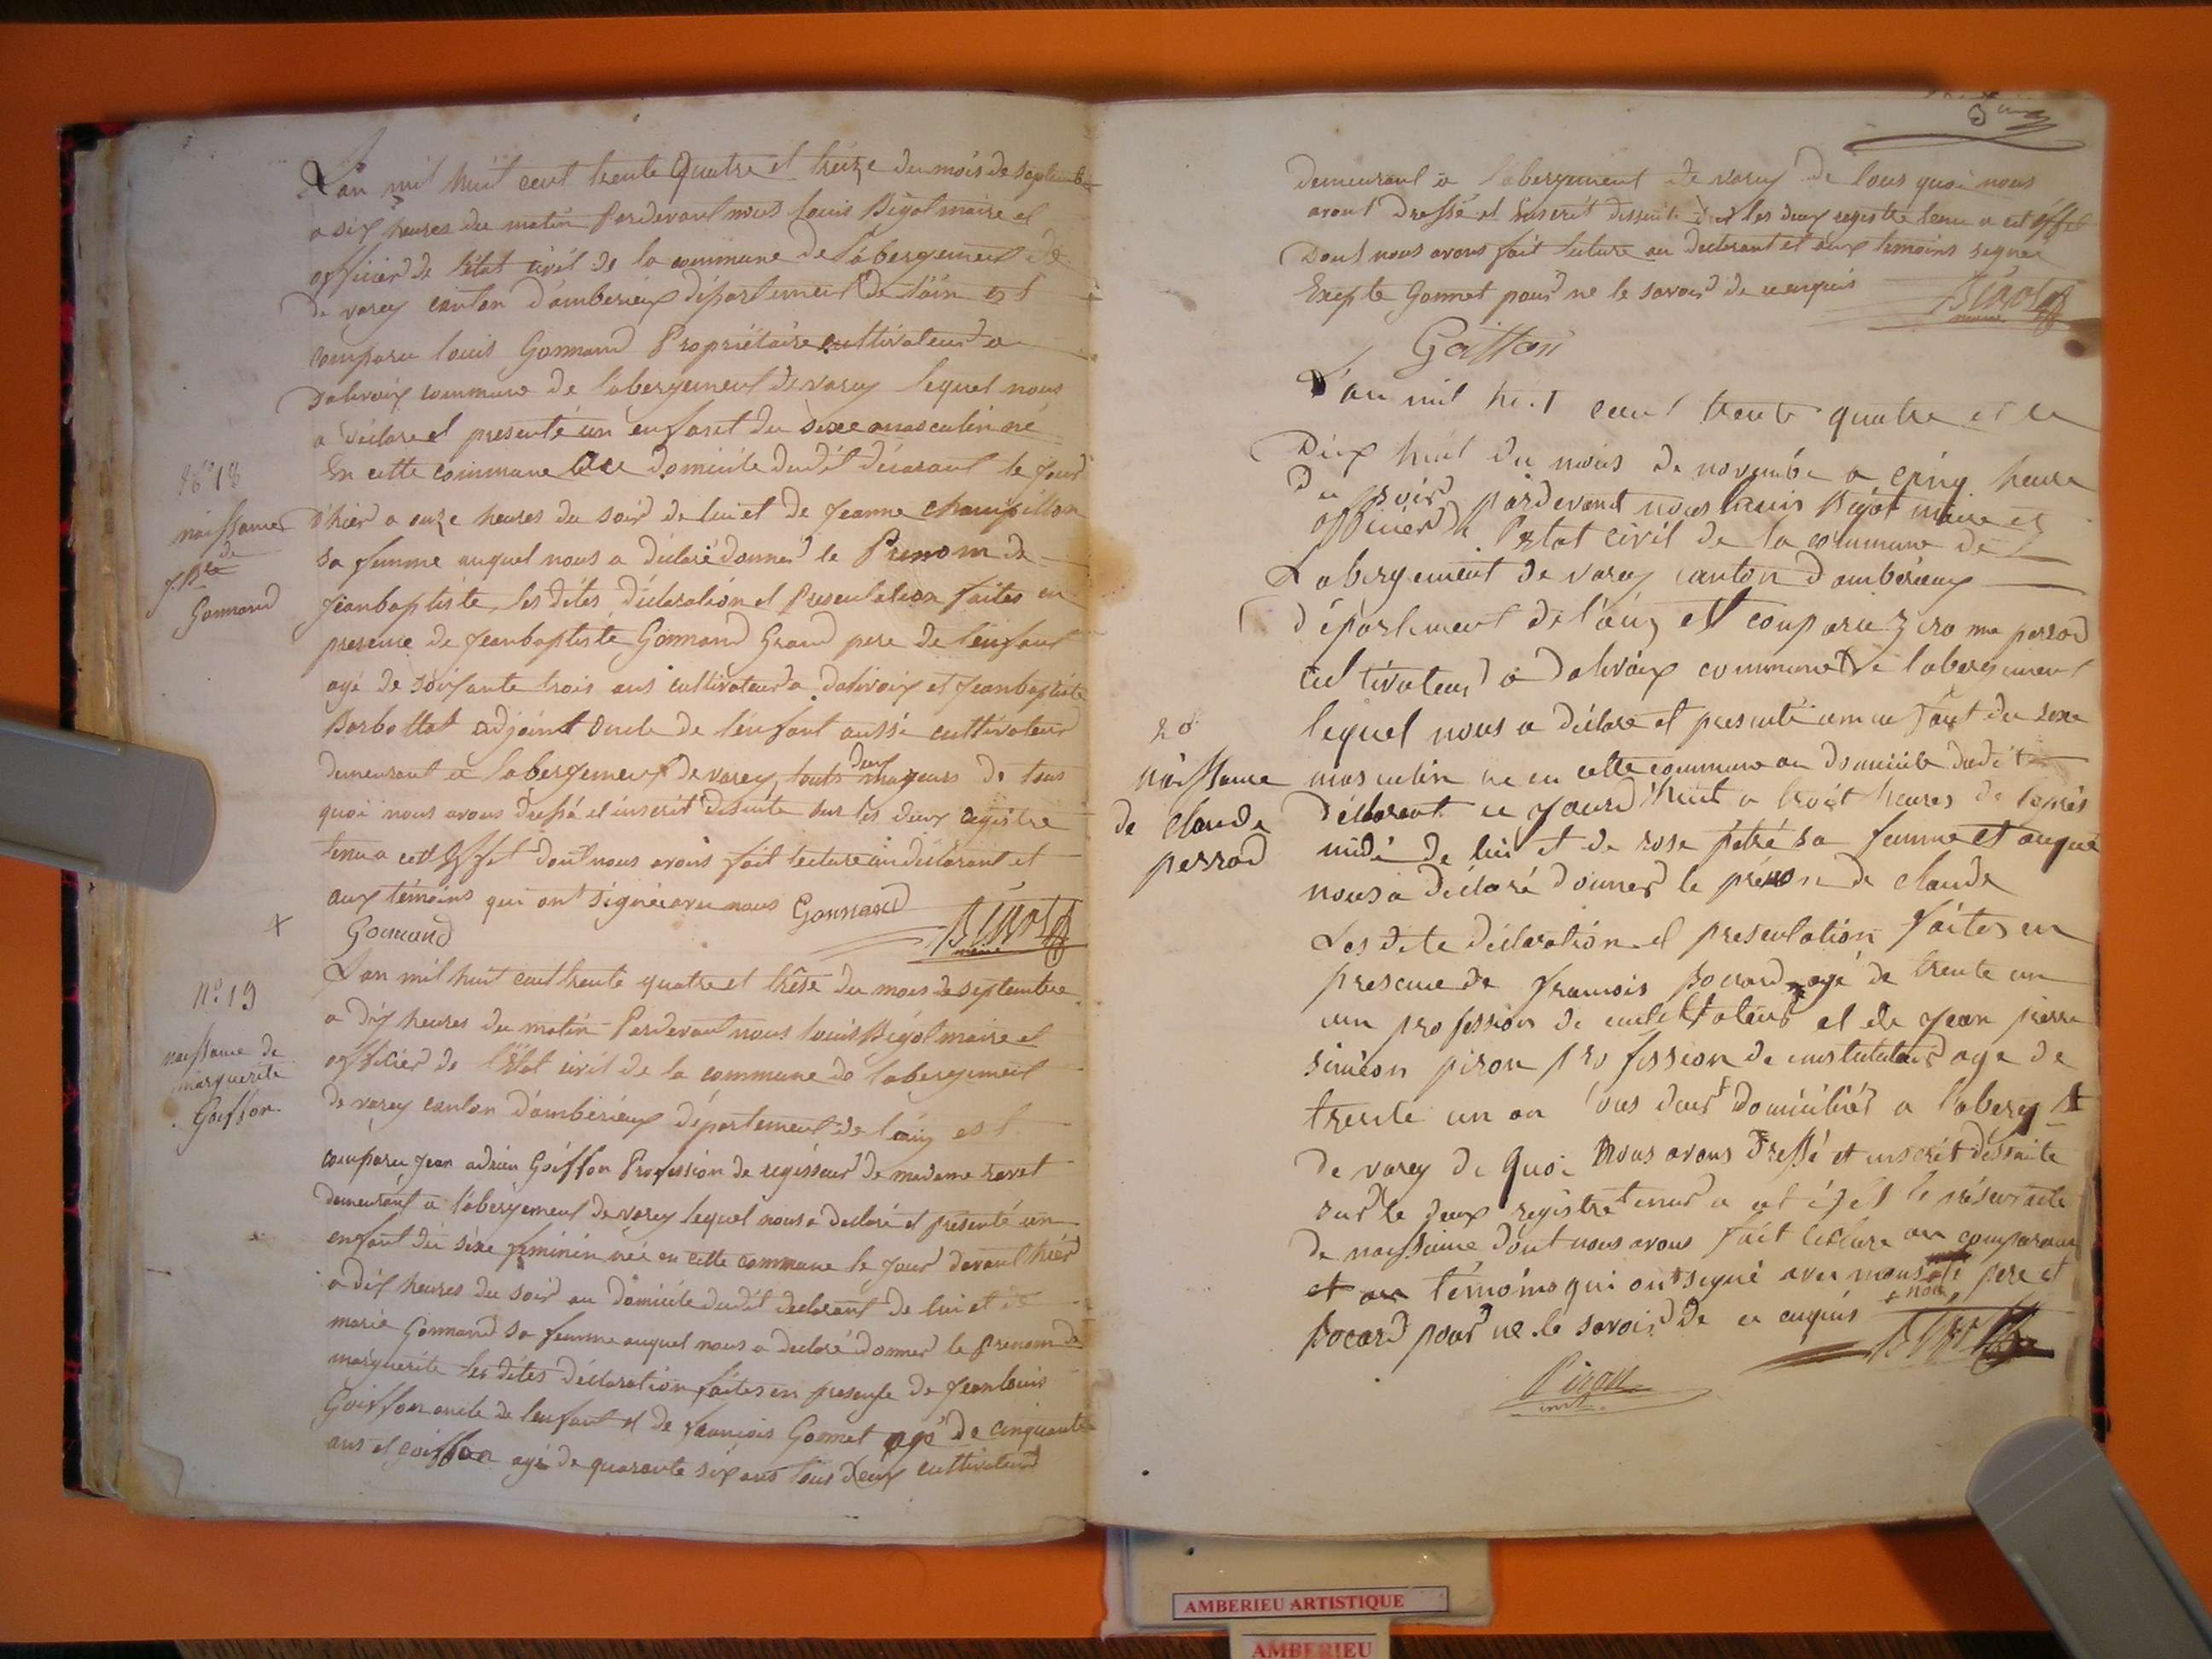 L'an mil huit cent trente quatre et treize du mois de septembre
a six heures du matin Pardevant nous louis Bigot maire et
officier de l'état civil de la commune de l'abergement de
de varey canton d'amberieux département de l'ain est
comparu louis Gonnand Propriétaire cultivateur a
dalivoix commune de labergement de varey lequel nous
a déclaré et presenté un enfant du sexe masculin né
En cette commune au domicile dudit déclarant le jour
d'hier a onze heures du soir de lui et de Jeanne Champillon
sa femme auquel nous a déclaré donner le Prenom de
Jeanbaptiste, les dites déclaration et Presentation faites en
presence de Jeanbaptiste Gonnand Grand pere de l'enfant
agé de soixante trois ans cultivateur a dalivoix et Jeanbaptiste
Barbollat adjoint oncle de l'enfant aussi cultivateur
demeurant a labergement de varey, touts deux majeurs de tous
quoi nous avons dressé et inscrit desuite sur les deux registre
tenu a cet Effet dont nous avons fait lecture au déclarant et
aux témoins qui ont signé avec nous Gonnand
Gonnand
Bigot
maire
N° 18
naissance
de
J. Bte
Gonnand
L'an mil huit cent trente quatre et trêse du mois de septembre
a dix heures du matin Pardevant nous louis Bigot maire et
officier de l'état civil de la commune de labergement
de varey canton d'ambérieux département de l'ain est
comparu Jean adrien Goiffon Profession de regisseur de madame ravet
demeurant a l'abergement de varey lequel nous a declaré et presenté un
enfant du sexe feminin née en cette commune le jour davant hier
a dix heures du soir au domicile dudit declarant de lui et de
marie Gonnand sa femme auquel nous a declaré donner le Prenom de
marguerite les dites déclaration faites en presense de Jeanlouis
Goiffon oncle de lenfant et de francois Gonnet agé de cinquante
ans et goiffon agé de quarante six ans tous deux cultivateur
N° 19
naissance de
marguerite
Goiffon
demeurant a labergement de varey de tous quoi nous
avont dressé et Inscrit dessuite les deux registre tenu a cet éffet
Dont nous avons fait lecture au declarant et aux temoins signer
Exepte Gonnet pour ne le savoir de ce enquis
Bigot
maire
Goiffon
L'an mil huit cent trente quatre et le
Dix huit du mois de novembre a cinq heure
du soir pardevant nous louis Bigot maire et
officier de l'Etat civil de la commune de
Labergement de varey canton d'ambérieux
département de l'ain est comparu perrod
cultivateur a dalivoix commune de labergement
lequel nous a déclare et presenté un enfant du sexe
masculin ne en cette commune au domicile dudit
déclarant ce jourd'huit a troit heures de laprès
midi de lui et de rose sa femme et auquel
nous a déclaré donner le prénom de claude
Les dite déclaration et presentation faites en
presence de francois bocard agé de trente un
an profession de cultivateur et de Jean pierre
siméon pison profession de instututeur age de
trente un an tous deux domiciliés a l'aberg t
de varey de Quoi Nous avons dressé et inscrit dessuite
sur le deux registre tenus a cet éfet le présent acte
de naissance dont nous avons fait lecture au comparant
et au témoins qui ont signé avec nous non le pere et
bocard pour ne le savoir de ce enquis
Bigot
Pison
inst.
20
naissance
de claude
perrod
AMBERIEU ARTISTIQUE
AMBERIEU